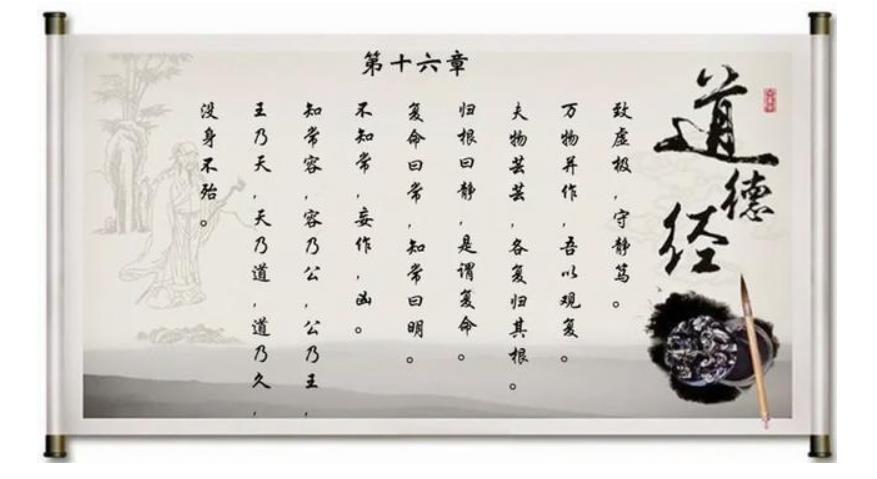 道德经
第十六章
致虚极，守静笃。
万物并作，吾以观复。
夫物芸芸，各复归其根。
归根曰静，是谓复命。
复命曰常，知常曰明。
不知常，妄作，凶。
知常容，容乃公，公乃王，
王乃天，天乃道，道乃久，
没身不殆。